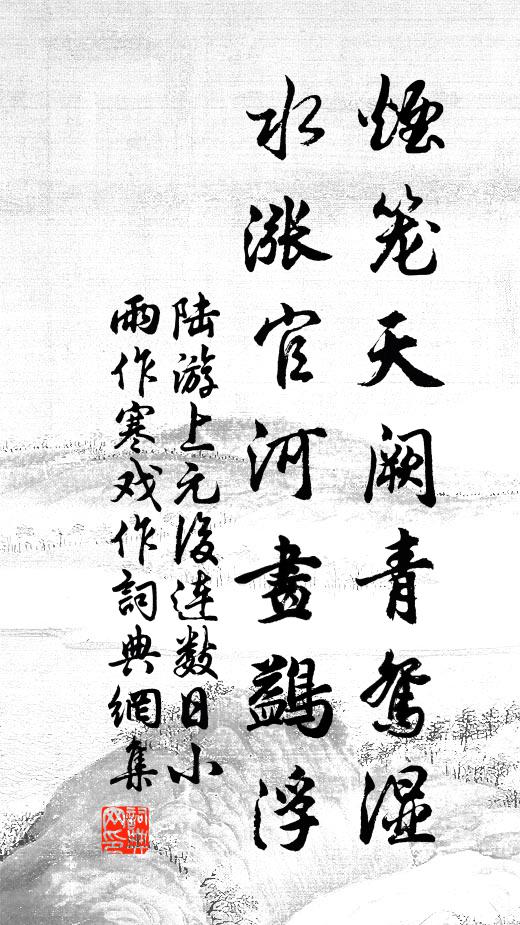 煙笼天阙青鴛湿
水涨官河畫鷁浮
陆游上元後连数日小
雨作寒戏作詞典網集